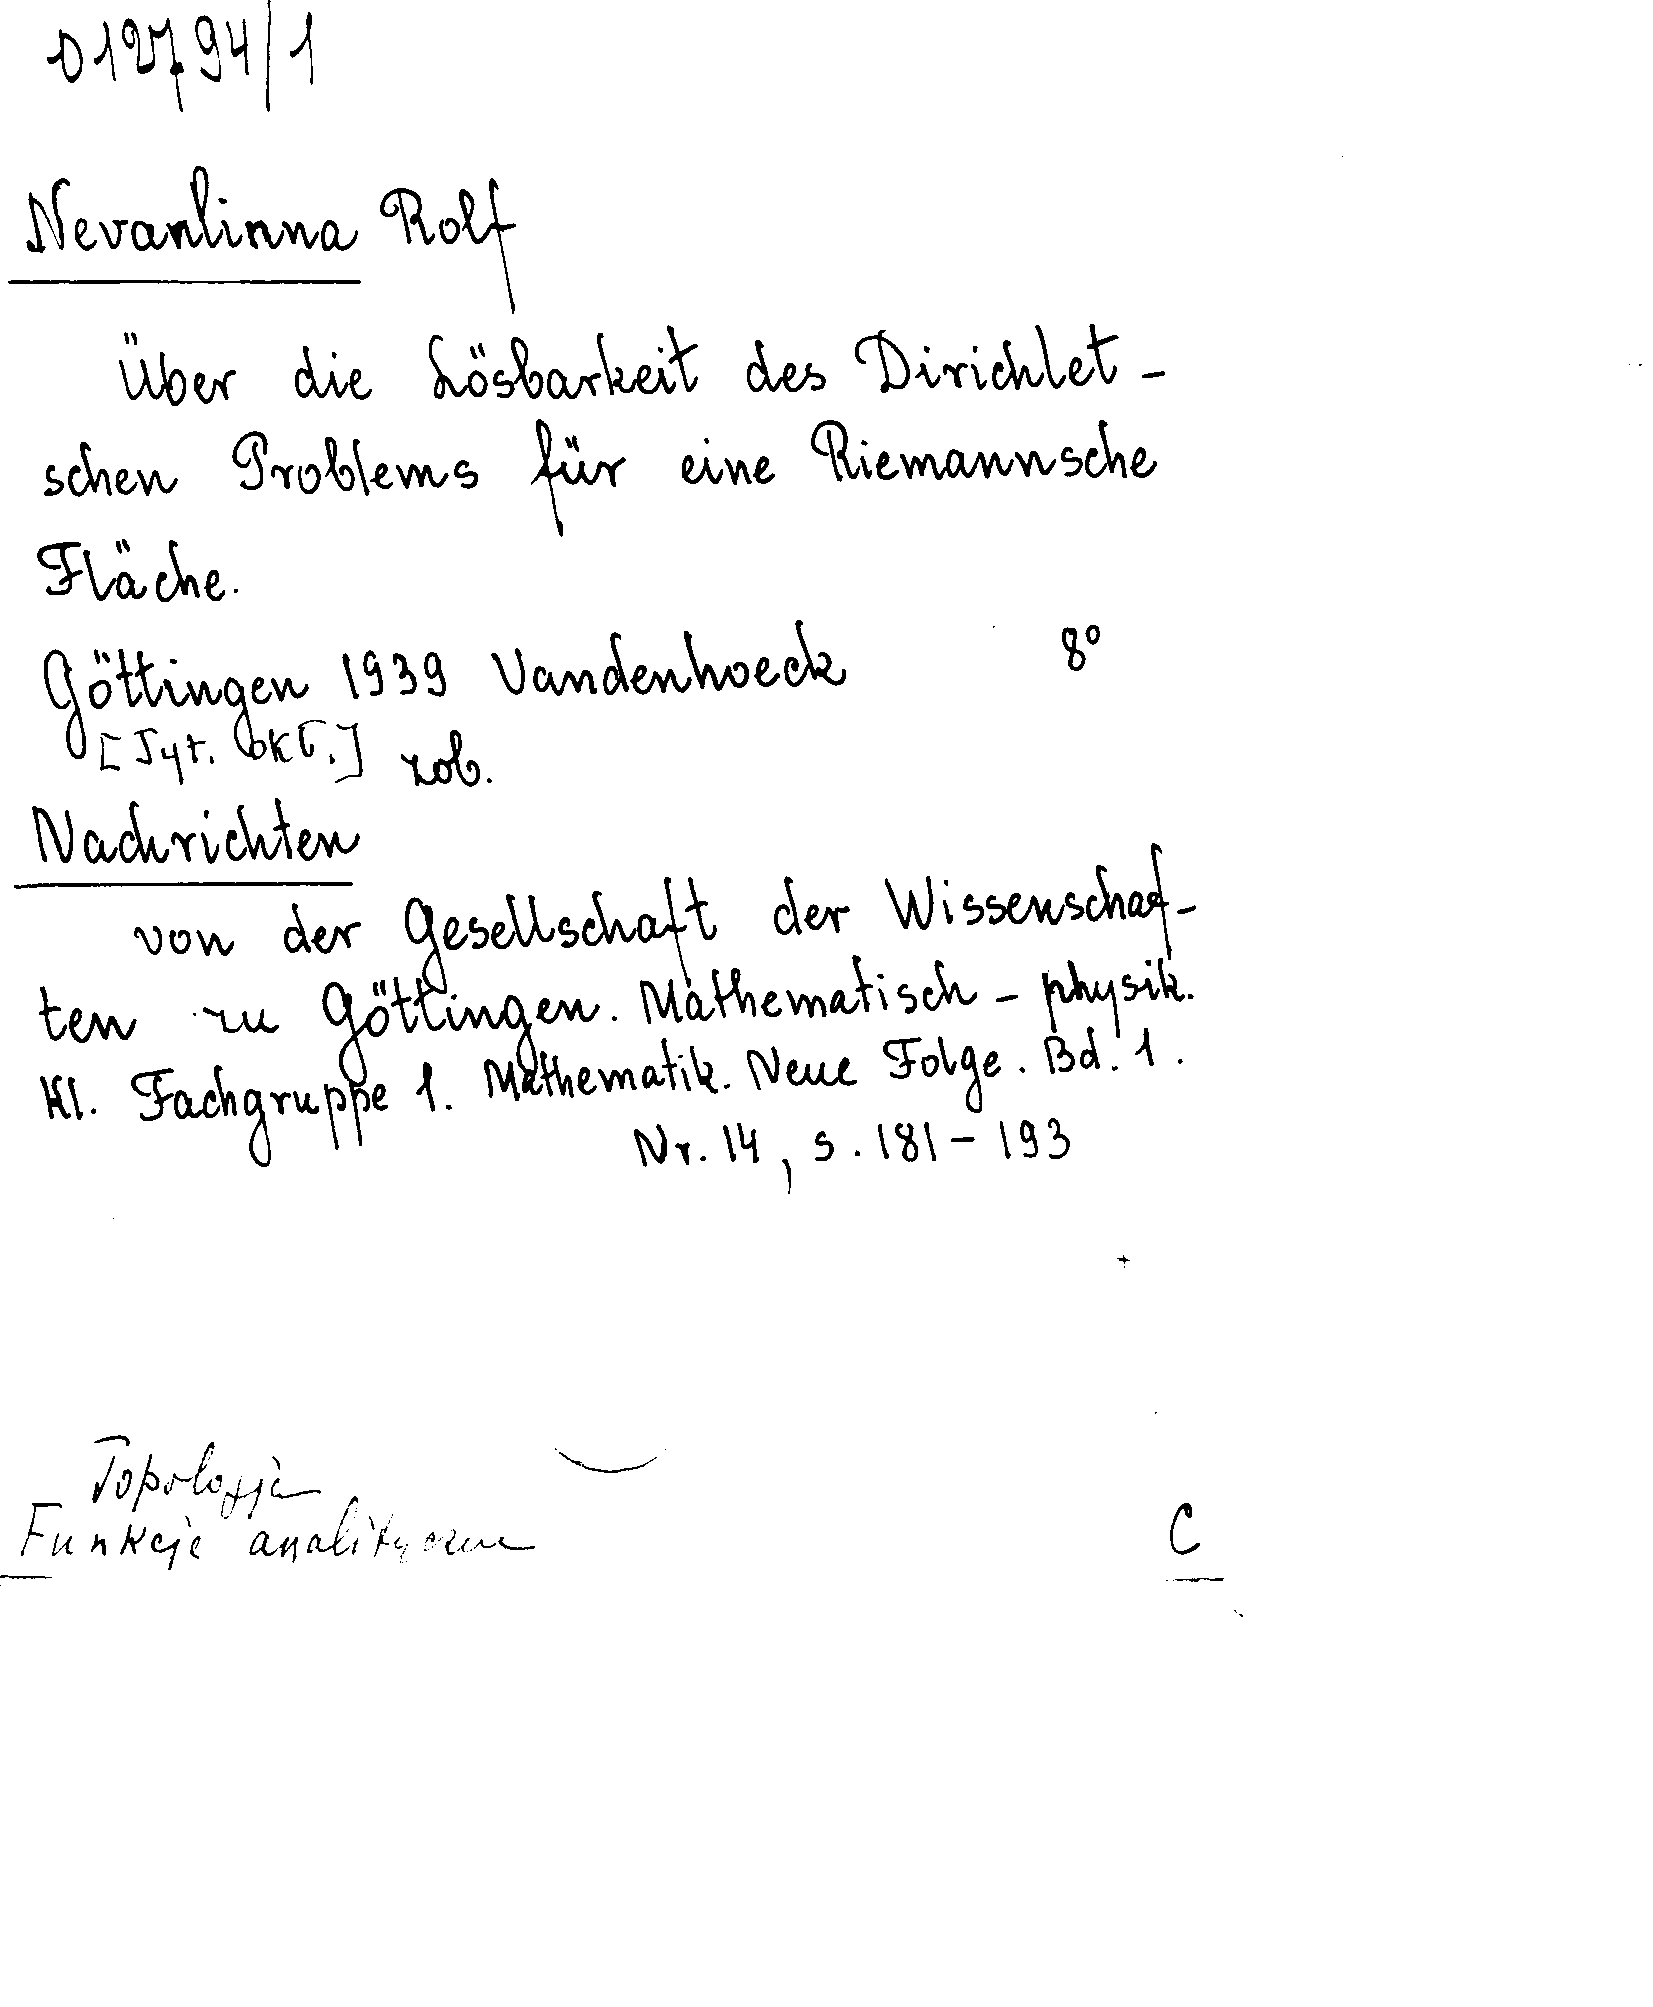 012794/1
Nevanlinna Rolf
Über die Lösbarkeit des Dirichlet-
schen Problems für eine Riemannsche
Fläche.
Göttingen 1939 Vandenhoeck 8°
[Tyt. okł.] zob.
Nachrichten
von der Gesellschaft der Wissenschaf-
ten zu Göttingen. Mathematisch - physik.
Kl. Fachgruppe 1. Mathematik. Neue Folge. Bd. 1.
Nr. 14, s. 181 - 193
Topologja
Funkcje analityczne C